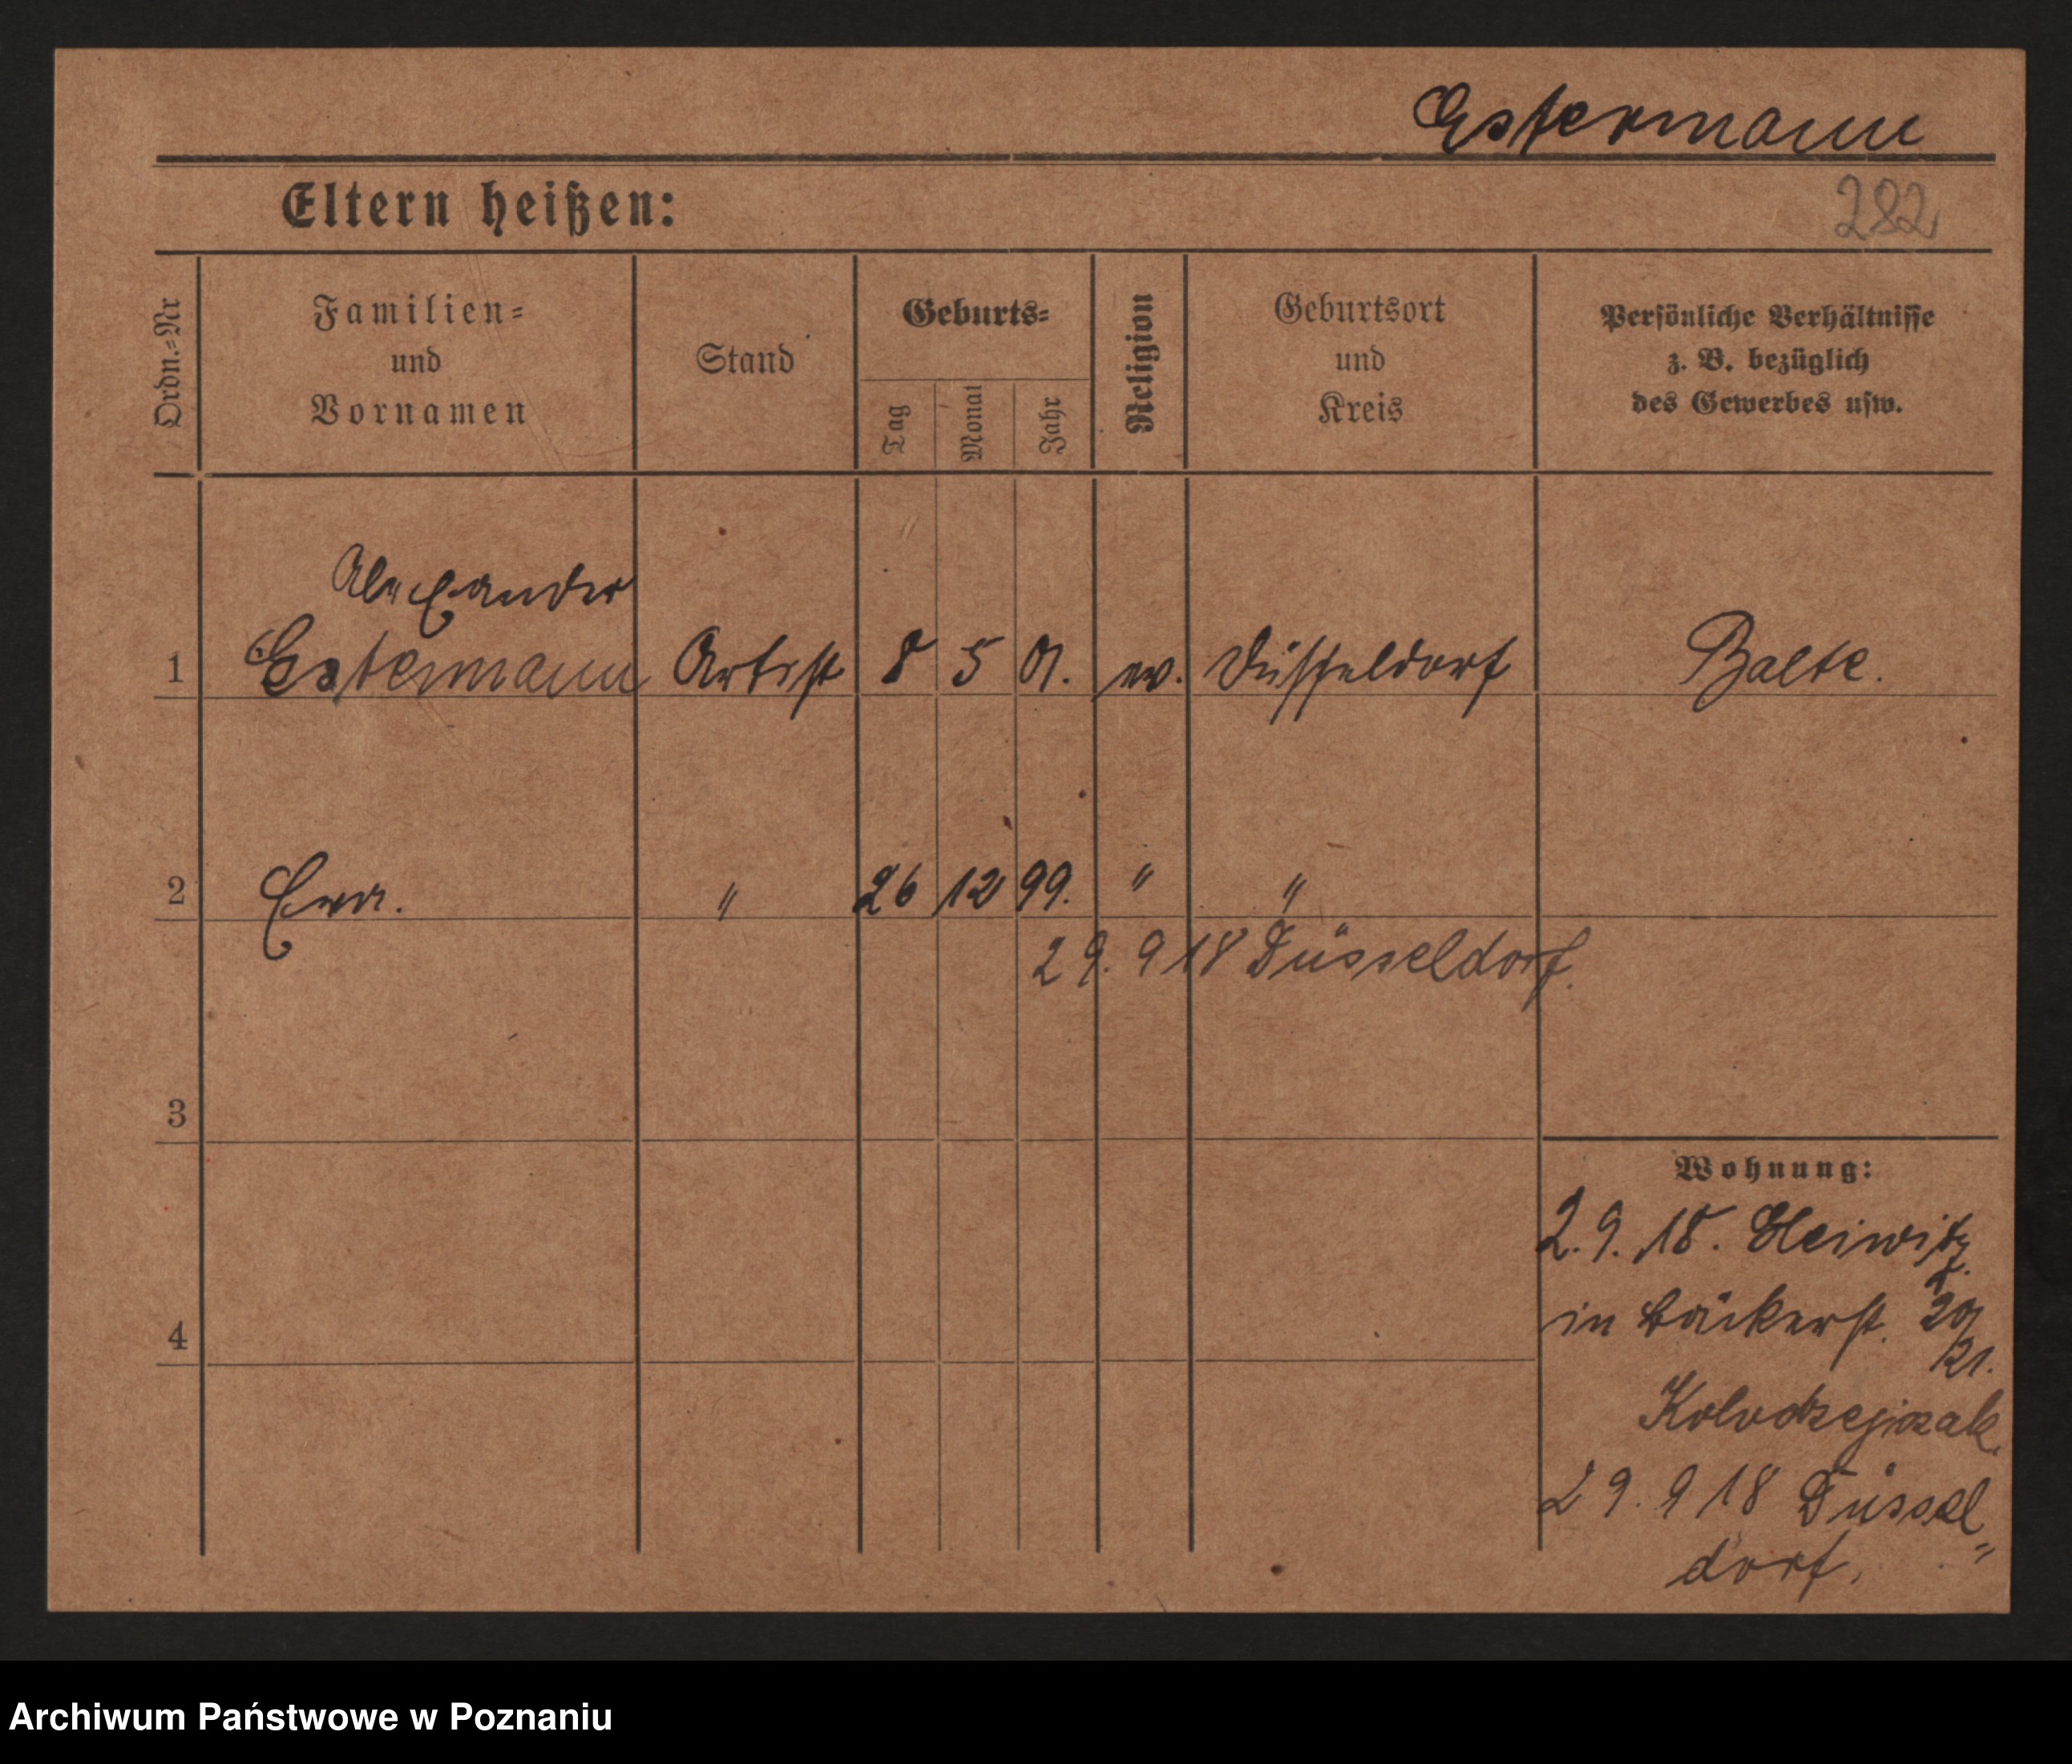 Estermann
Eltern heißen:
282
Ordn.-Nr
Familien-
und
Vornamen
Stand
Geburts-
Tag
Monat
Jahr
Religion
Geburtsort
und
Kreis
Persönliche Verhältnisse
z. B. bezüglich
des Gewerbes usw.
Alexander
1 Estermann Artist 8 5 01. ev. Düsseldorf
2 Erna. " 26 12 99. " "
29. 9 18 Düsseldorf.
3
Wohnung:
2. 9. 18.
in Bäckerst. 20/21.
4
29. 9 18 Düssel"
dorf.
Archiwum Państwowe w Poznaniu